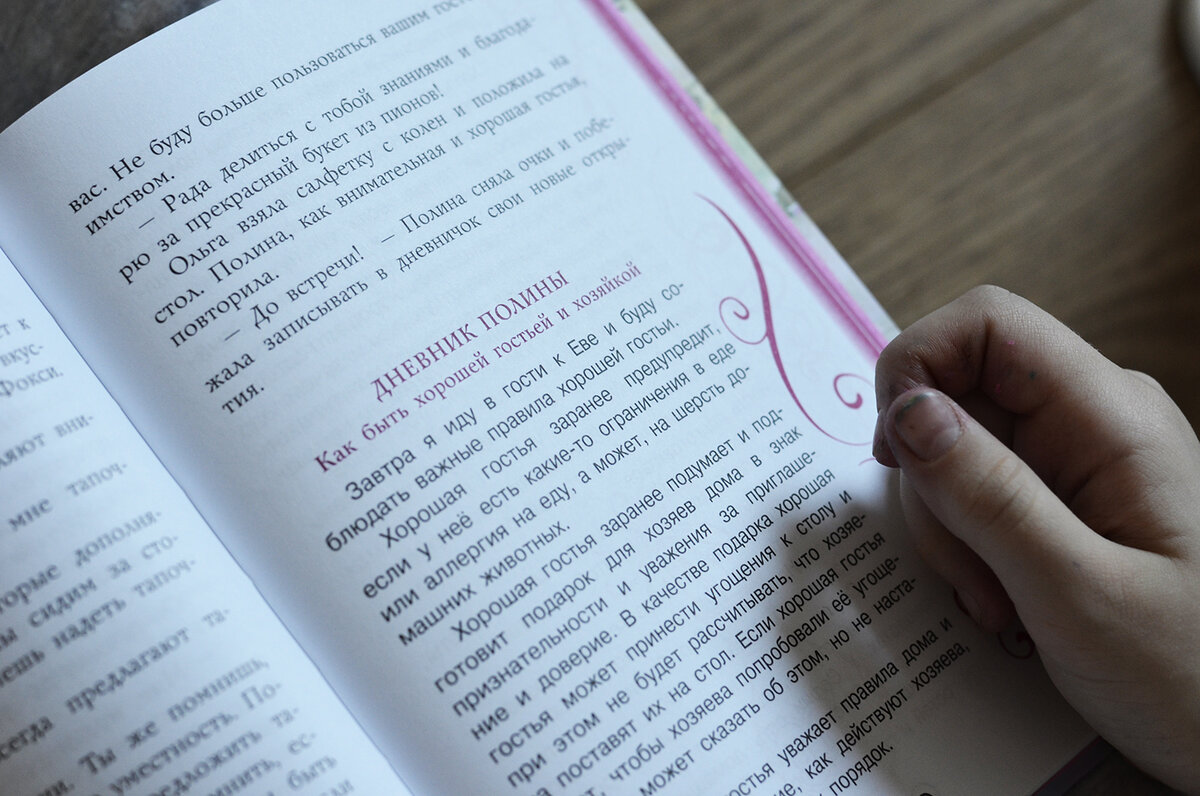 т к
вкус-
Фокси.
ляют вни-
мне тапоч-
которые дополня-
сидим за сто-
надеть тапоч-
всегда предлагают та-
Ты же помнишь,
уместность. По-
предложить та-
ес-
быть
вас. Не буду больше пользоваться вашим гост
имством.
— Рада делиться с тобой знаниями и благода-
рю за прекрасный букет из пионов!
Ольга взяла салфетку с колен и положила на
стол. Полина, как внимательная и хорошая гостья,
повторила.
— До встречи! — Полина сняла очки и побе-
жала записывать в дневничок свои новые откры-
тия.
ДНЕВНИК ПОЛИНЫ
Как быть хорошей гостьей и хозяйкой
Завтра я иду в гости к Еве и буду со-
блюдать важные правила хорошей гостьи.
Хорошая гостья заранее предупредит,
если у неё есть какие-то ограничения в еде
или аллергия на еду, а может, на шерсть до-
машних животных.
Хорошая гостья заранее подумает и под-
готовит подарок для хозяев дома в знак
признательности и уважения за приглаше-
ние и доверие. В качестве подарка хорошая
гостья может принести угощения к столу и
при этом не будет рассчитывать, что хозяе-
ва поставят их на стол. Если хорошая гостья
чтобы хозяева попробовали её угоще-
может сказать об этом, но не наста-
гостья уважает правила дома и
как действуют хозяева,
порядок.